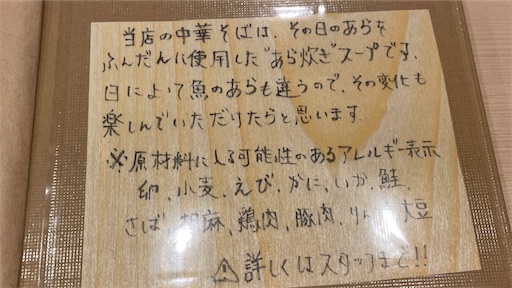 当店の中華そばは、その日のあらを
ふんだんに使用した"あら炊き"スープです。
日によって魚のあらも違うので、その変化も
楽しんでいただけたらと思います。
※原材料に入る可能性のあるアレルギー表示
卵、小麦、えび、かに、いか、鮭、
さば、胡麻、鶏肉、豚肉、りんご、大豆
⚠詳しくはスタッフまで!!